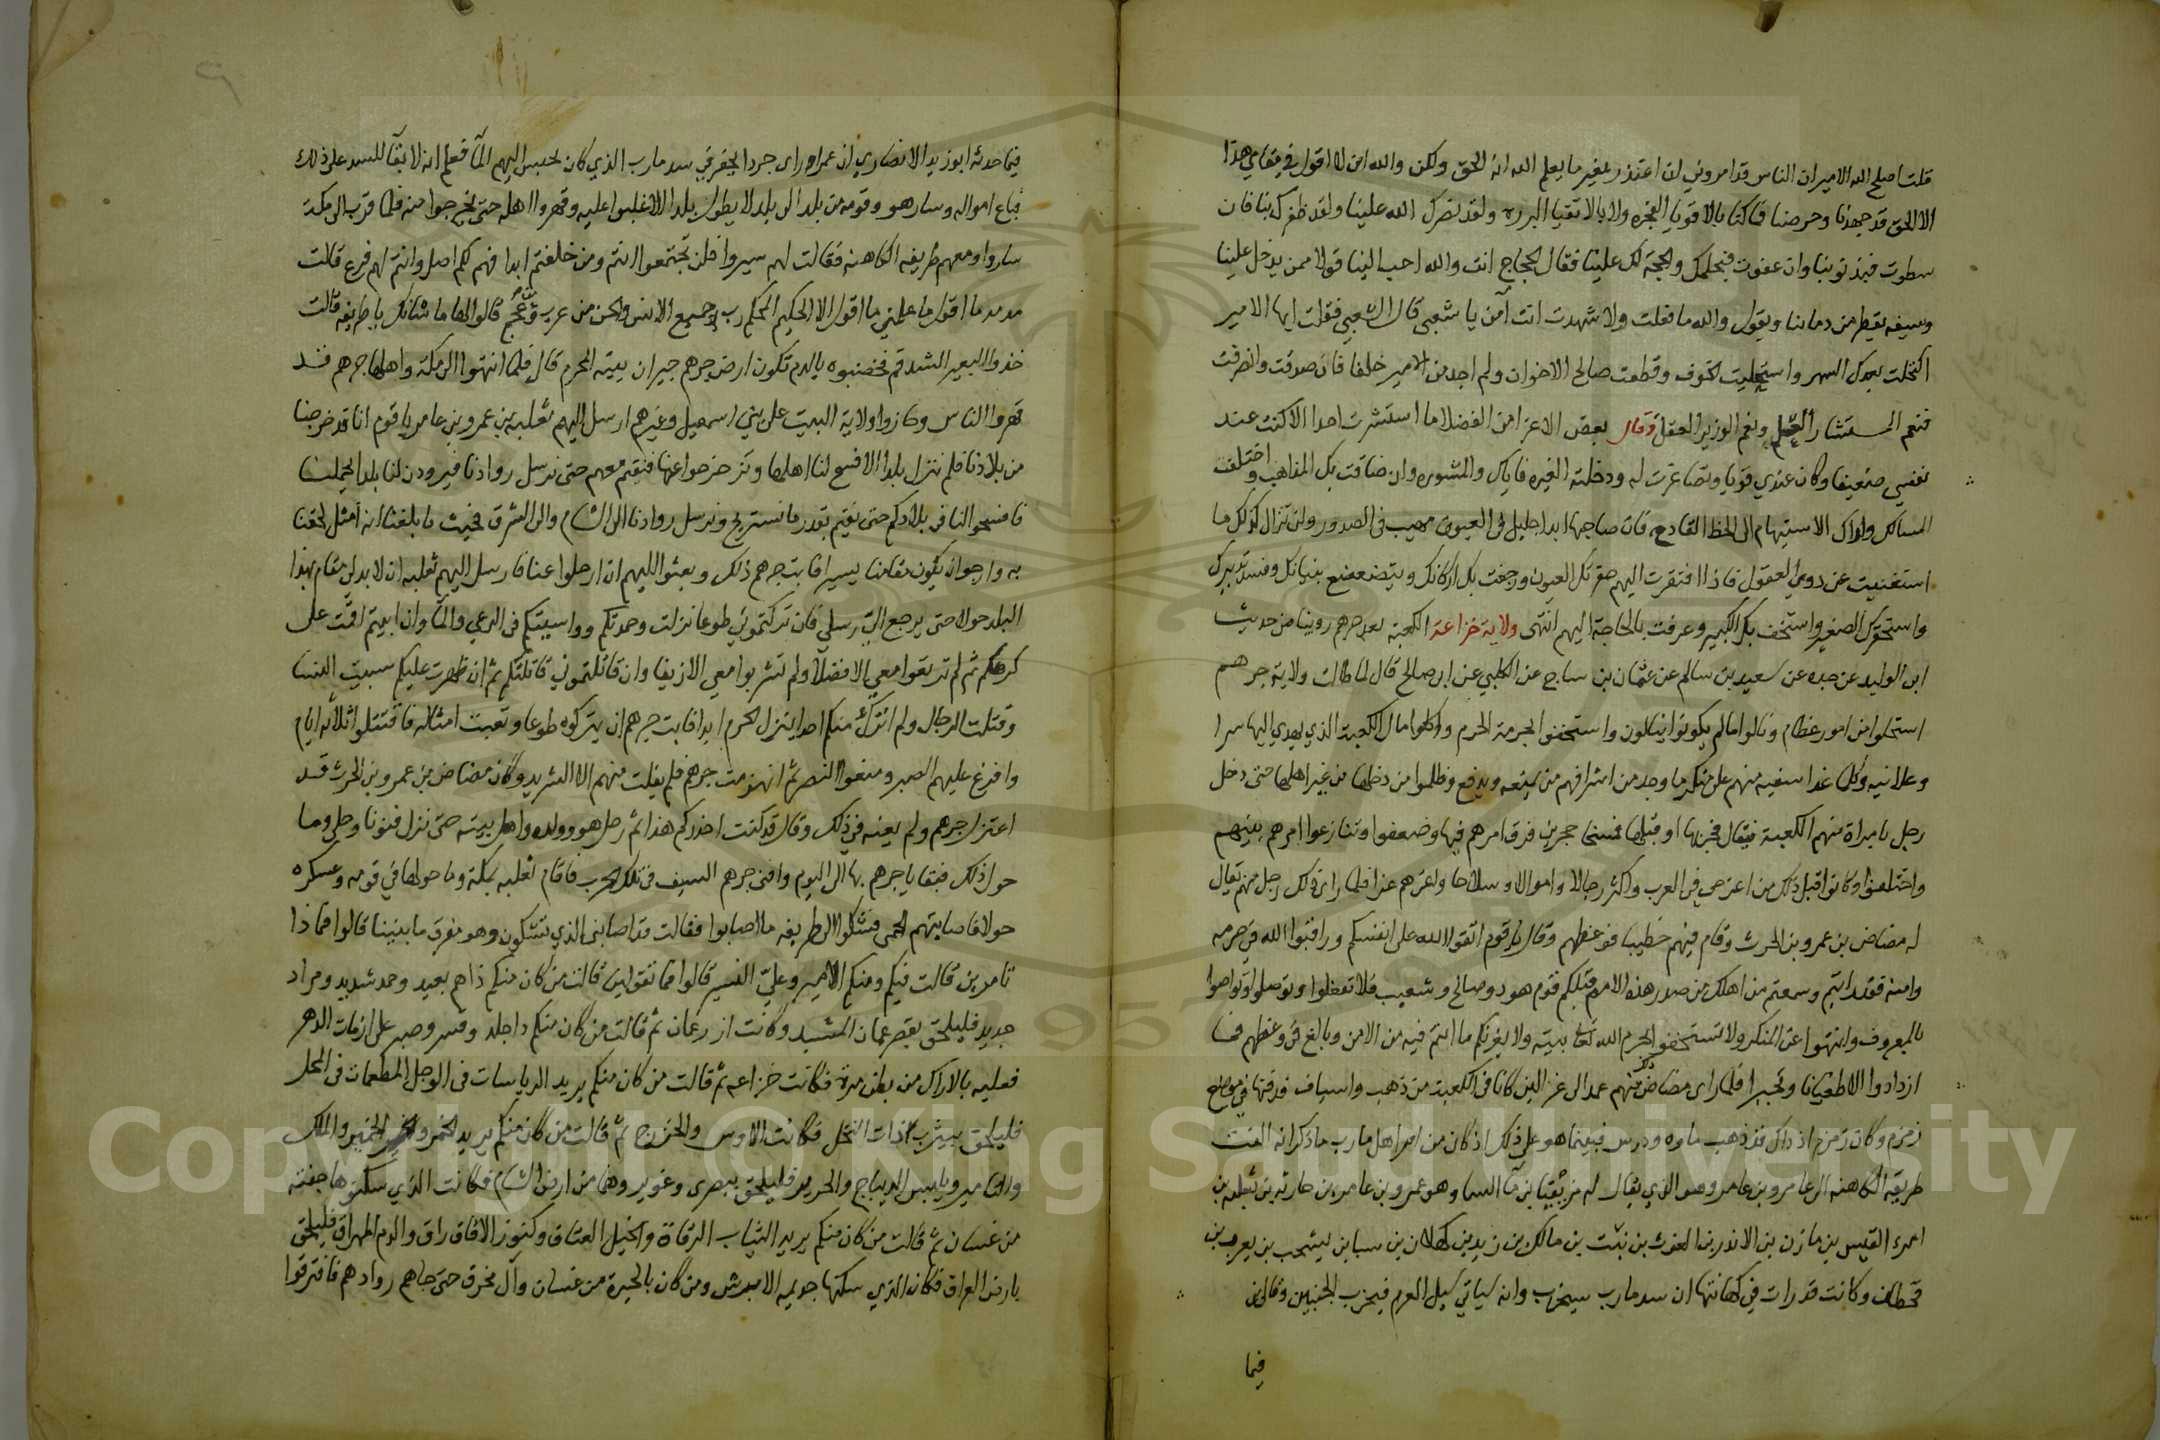 قلت اصلح الله الامير ان الناس قد امروني ان اعتذر بغير ما يعلم الله انه الحق ولكن والله اني لا اقول في مقامي هذا
الا الحق قد جهدنا وحرصنا فما كنا بالاقويا الفجره ولا بالاتقيا البرره ولقد نصرك الله علينا ولقد ظفرك بنا فان
سطوت فبذنوبنا وان عفوت فبحلمك والحجة لك علينا فقال الحجاج انت والله احب الينا قولا ممن يدخل علينا
وسيفه يقطر من دماينا ويقول والله ما فعلت ولا شهدت انت آمن يا شعبي قال الشعبي فقلت ايها الامير
اكتحلت بعدك السهر واستحليت الخوف وقطعت صالح الاخوان ولم اجد من الامير خلفا قال صدقت وانصرفت
فنعم المستشار العلم ونعم الوزير العقل وقال بعض الاعزا من الفضلا ما استشرت احدا الا كنت عند
نفسي ضعيفا وكان عندي قويا وتصاغرت له ودخلته العزه فاياك والمشوره وان ضاقت بك المذاهب واختلفت
المسالك واداك الاستبهام الى الخطا الفادح فان صاحبها ابدا جليل في العيون مهيب في الصدور ولن تزال كذلك ما
استغنيت عن ذوي العقول فاذا افتقرت اليهم حقرتك العيون ورجفت بك اركانك وتضعضع بنيانك وفسد تدبيرك
واستحقرك الصغير واستخف بك الكبير وعرفت بالحاجة اليهم انتهى ولاية خزاعة الكعبة بعد جرهم روينا من حديث
ابن الوليد عن جده عن سعيد بن سالم عن عثمان بن ساج عن الكلبي عن ابي صالح قال لما طالت ولاية جرهم
استحلوا من امور عظام ونالوا مالم يكونوا ينالون واستخفوا بحرمة الحرم واكلوا مال الكعبة الذي يهدي اليها سرا
وعلانيه وكلما عدا سفيه منهم على منكر ما وجد من اشرافهم من يمنعه ويدفع وظلموا من دخلها من غير اهلها حتى دخل
رجل بامراة منهم الكعبة فيقال فجر بها او قبلها فمسخا حجرين فرق امرهم فيها وضعفوا وتنازعوا امرهم بينهم
واختلفوا وكانوا قبل ذلك من اعز حي في العرب واكثر رجالا واموالا وسلاحا واعزهم عزا فلما راى ذلك رجل منهم يقال
له مضاض بن عمرو بن الحرث وقام فيهم خطيبا فوعظهم وقال يا قوم اتقوا الله على انفسكم وراقبوا الله في حرمه
وامنه فقد رايتم وسمعتم من اهلك من صدر هذه الامم قبلكم قوم هود وصالح وشعيب فلا تفعلوا وتوصلوا وتواصوا
بالمعروف وانتهوا عن المنكر ولا تستخفوا بحرم الله تعا بيته ولا يغرنكم ما انتم فيه من الامن وبالغ في وعظهم فما
ازدادوا الا طغيانا وتجبرا فلما راى مضاض ذلك منهم عمد الى غزالين كانا في الكعبة من ذهب واسياف فدفنها في موضع
زمزم وكان زمزم اذ ذاك قد ذهب ماوه ودرس فبينما هو على ذلك اذ كان من امر اهل مارب ما ذكر انه القت
طريفة الكاهنه الى عامر وبن عامر وهو الذي يقال له مزيقيا بن ما السما وهو عمرو بن عامر بن حارثه بن ثعلبه بن
امرء القيس بن مازن بن الازد بن الغوث بن نبت بن مالك بن زيد بن كهلان بن سبا بن يشجب بن يعرب بن
قحطان وكانت قد رات في كهانتها ان سد مارب سيخرب وانه سياتي سيل العرم فيخرب الجنتين وقال ابن
فيما
فيما حدثه ابو زيد الانصاري ان عمرا راى جردا يحفر في سد مارب الذي كان يحبس اليهم الما فعلم انه لا بقا للسد على ذلك
فباع امواله وسار هو وقومه من بلد الى بلد لا يطون بلدا الا غلبوا عليه وقهروا اهله حتى يخرجوا منه فلما قرب الى مكة
ساروا ومعهم طريفه الكاهنه فقالت لهم سيروا فلن تجتمعوا انتم ومن خلفتم ابدا فهم لكم اصل وانتم لهم فرع قالت
مه مه ما اقول ما علمني ما اقول الا الحكيم المحكم رب جميع الانس والجن من عرب وعجم قالوا لها ما شانك يا طريفه قالت
خذوا البعير الشدقم فخضبوه بالدم تكون ارض جرهم جيران بيته المحرم قال فلما انتهوا الى مكة واهلها جرهم قد
قهروا الناس وحازوا ولاية البيت على بني اسمعيل وغيرهم ارسل اليهم ثعلبه بن عمرو بن عامر يا قوم انا قد خرجنا
من بلادنا فلم ننزل بلدا الا افسح لنا اهلها وتزحزحوا عنها فنقيم معهم حتى نرسل روادنا فيرودون لنا بلدا يحملنا
فافسحوا لنا في بلادكم حتى نقيم بقدر ما نستريح ونرسل روادنا الى الشام والى الشرق فحيث ما بلغنا انه امثل لحقنا
به وارجوا ان يكون مقامنا يسيرا فابت جرهم ذلك وبعثوا اليهم ان ارحلوا عنا فارسل اليهم ثعلبه ان لا بد لي من مقام بهذا
البلد حولا حتى يرجع الي رسلي فان تركتموني طوعا نزلت وحمدتكم وواسيتكم في الرعي والما وان ابيتم اقمت على
كرهكم ثم لم ترتعوا معي الا فضلا ولم تشربوا معي الا رنقا وان قاتلتموني قاتلتكم ثم ان ظهرت عليكم سبيت النسا
وقتلت الرجال ولم اترك منكم احدا ينزل الحرم ابدا فابت جرهم ان يتركوه طوعا وتعبت امثاله فاقتتلوا ثلاثه ايام
وافرغ عليهم الصبر ومنعوا النصر ثم انهزمت جرهم فلم يفلت منهم الا الشريد وكان مضاض بن عمرو بن الحرث قد
اعتزل جرهم ولم يعنه في ذلك وقال قد كنت احذركم هذا ثم رحل هو وولده واهل بيته حتى نزل قنونا وحلي وما
حول ذلك فبقايا جرهم بها الى اليوم وافنى جرهم السيف في تلك الحرب فاقام ثعلبه بمكة وما حولها في قومه وعسكره
حولا فاصابتهم الحمى فشكوا الى طريفه ما اصابوا فقالت قد اصابني الذي تشكون وهو مفرق ما بيننا قالوا فما ذا
تامرين قالت فيكم ومنكم الامير وعلي التفسير قالوا فما تقولين قالت من كان منكم ذا هم بعيد وحمل شديد ومراد
جديد فليلحق بقصر عمان المشيد وكانت ازد عمان ثم قالت من كان منكم ذا جلد وقسر وصبر على ازمات الدهر
فعليه بالاراك من بطن مرة فكانت خزاعه ثم قالت من كان منكم يريد الراسيات في الوحل المطعمات في المحل
فليلحق بيثرب ذات النخل فكانت الاوس والخزرج ثم قالت من كان منكم يريد الخمر والخمير والملك
والتامير ويلبس الديباج والحرير فليلحق ببصرى وغوير وهما من ارض الشام فكانت الذي سكنوها جفنه
من غسان ثم قالت من كان منكم يريد الثياب الرقاق والخيل العتاق وكنوز الافاق راق والدم المهراق فليلحق
بارض العراق فكان الذي سكنها جذيمه الابرش ومن كان بالحيرة من غسان وآل محرق حتى جاهم روادهم فافترقوا